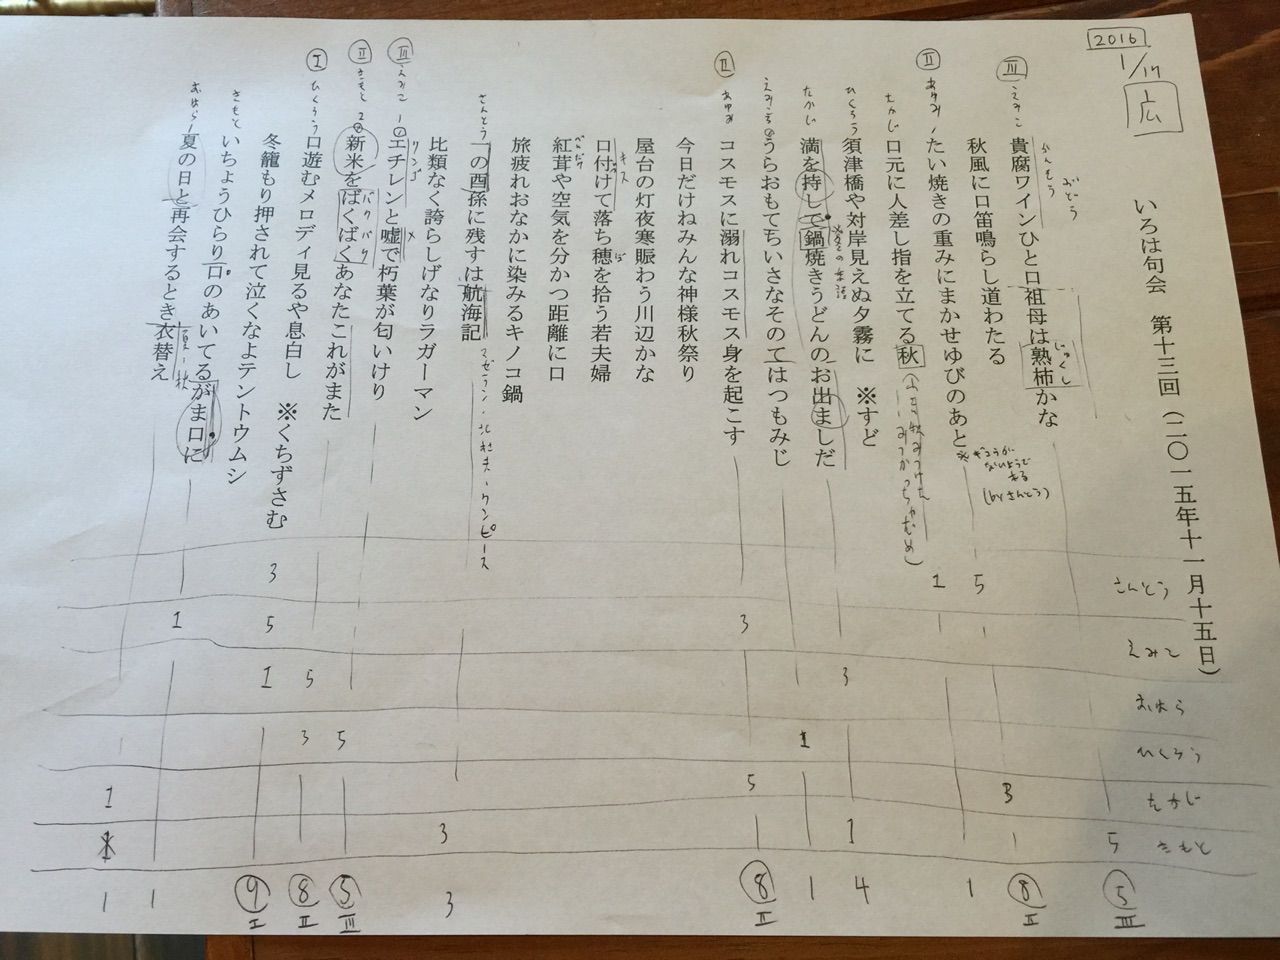 2016
1/17
広
いろは句会　第十三回（二〇一五年十一月十五日）
貴腐ワインひと口祖母は熟柿かな
じゅくし
Ⅲ
えみこ
秋風に口笛鳴らし道わたる
たい焼きの重みにまかせゆびのあと
Ⅱ
(byさんとう)
口元に人差し指を立てる秋
たかじ
須津橋や対岸見えぬ夕霧に　※すど
ひくろう
満を持して鍋焼きうどんのお出ましだ
たかじ
うらおもてちいさなそのてはつもみじ
コスモスに溺れコスモス身を起こす
Ⅱ
あゆみ
今日だけねみんな神様秋祭り
屋台の灯夜寒賑わう川辺かな
口付けて落ち穂を拾う若夫婦
キス
ぼ
紅茸や空気を分かつ距離に口
べにたけ
旅疲れおなかに染みるキノコ鍋
一の酉孫に残すは航海記
さんとう
マゼラン・北杜夫・ワンピース
比類なく誇らしげなりラガーマン
エチレンと嘘で朽葉が匂いけり
リンゴ
Ⅲ
えみこ
新米をばくばくあなたこれがまた
バクバク
Ⅱ
さもと
口遊むメロディ見るや息白し　※くちずさむ
Ⅰ
ひくろう
冬籠もり押されて泣くなよテントウムシ
いちょうひらり口のあいてるがま口に
さもと
夏の日と再会するとき衣替え
夏－秋
さんとう
5
1
3
えみこ
3
5
1
おはら
3
5
1
ひくろう
1
5
3
たかじ
3
5
1
さもと
5
1
3
1
⑤
Ⅲ
⑧
Ⅱ
1
4
1
⑧
Ⅱ
3
⑤
Ⅲ
⑧
Ⅱ
⑨
Ⅰ
1
1